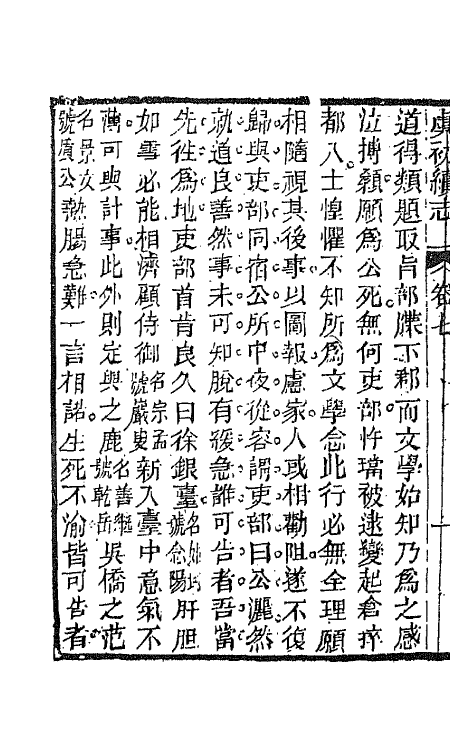 虞初續志 卷七 一
道得類題取旨部牒下郡而文學始知乃為之感
泣搏顙願為公死無何吏部忤璫被逮變起倉猝
都人士惶懼不知所為文學念此行必無全理願
相隨視其後事以圖報慮家人或相勸阻遂不復
歸與吏部同宿公所中夜從容謂吏部曰公灑然
就道良善然事未可知脫有緩急誰可告者吾當
先往為地吏部首肯良久曰徐銀臺名如珂號念陽肝胆
如雪必能相濟顧侍御名宗孟號巖叟新入臺中意氣不
薄可與計事此外則定興之鹿名善繼號乾岳吳橋之范
名景文號質公熱腸急難一言相諾生死不渝皆可告者